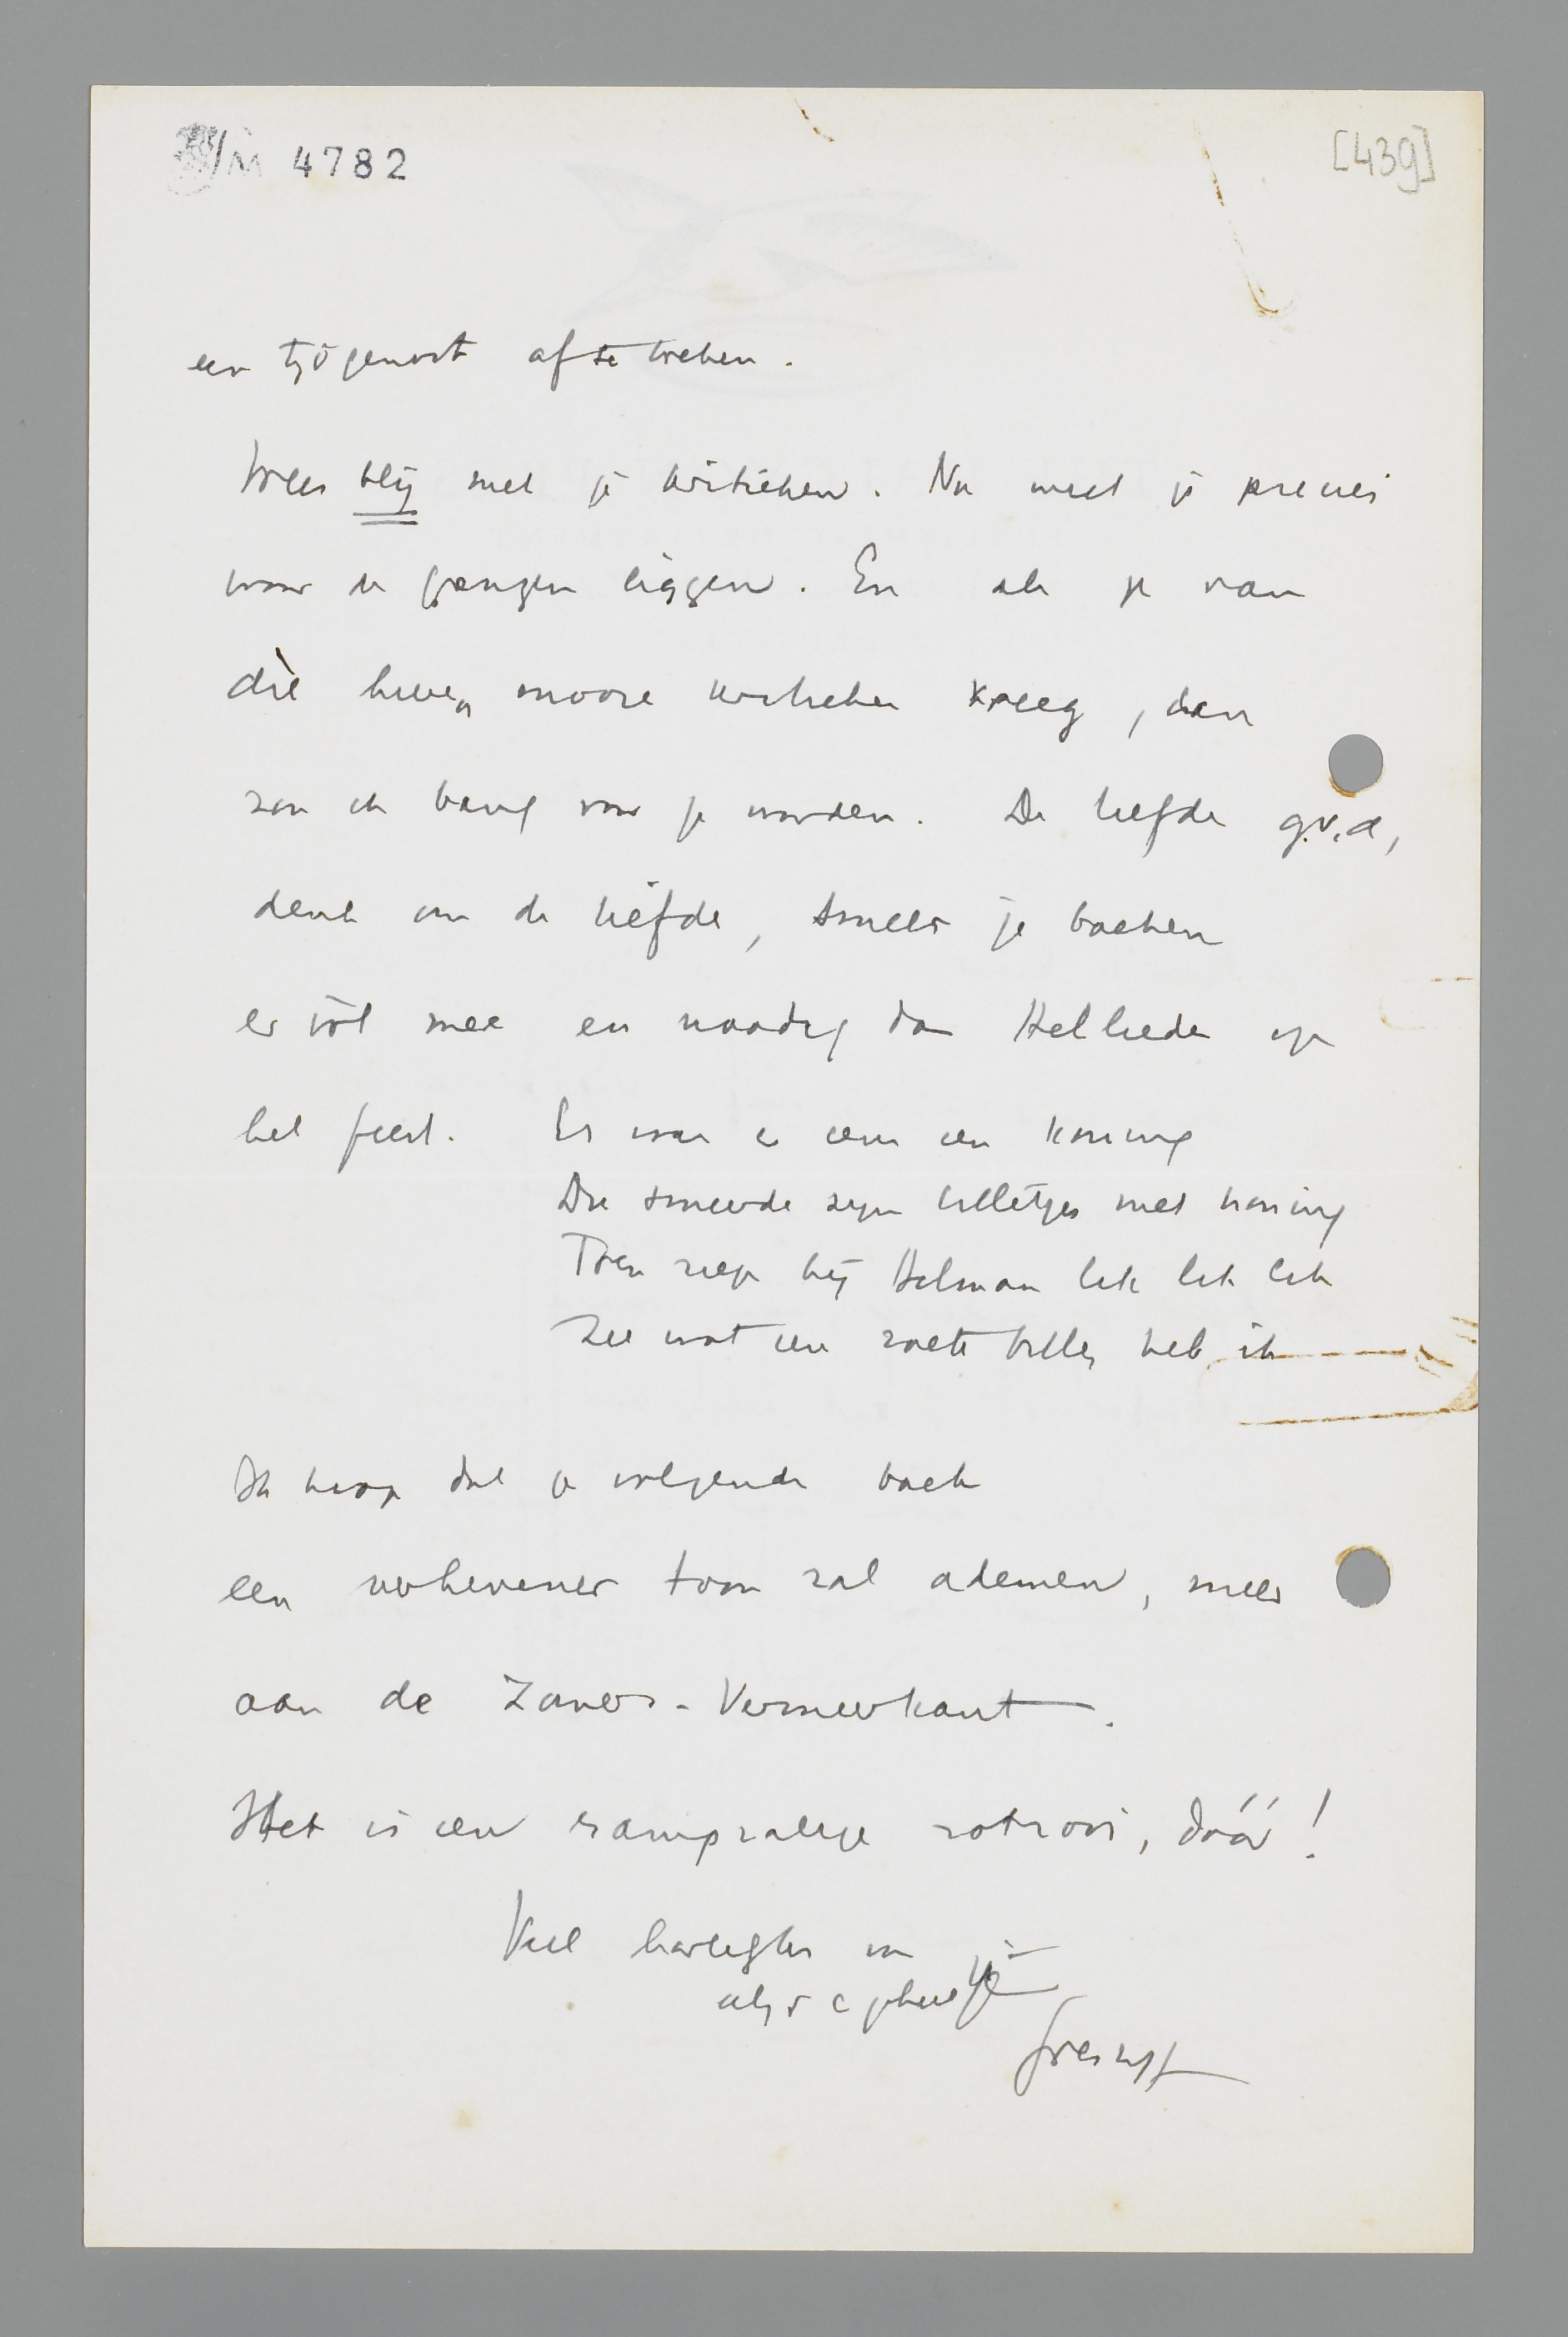 M 4782
[439]
een tijdgenoot af te breken.
Wees blij met je kritieken. Nu weet je precies
waar de grenzen liggen. En als je van
die heeren mooie kritieken kreeg, dan
zou ik bang voor je worden. De liefde g.v.d,
denk om de liefde, smeer je boeken
er vol mee en noodig dan Helliede op
het feest. Er was er eens een koning
Die smeerde zijn billetjes met honing
Toen riep hij Helman lik lik lik
Zie wat een zoete billen heb ik
Ik hoop dat je volgende boek
een verhevener toon zal ademen, meer
aan de Zaner-Vermeerkant.
Het is een rampzalige rotzooi, dáár!
Veel hartelijks van je